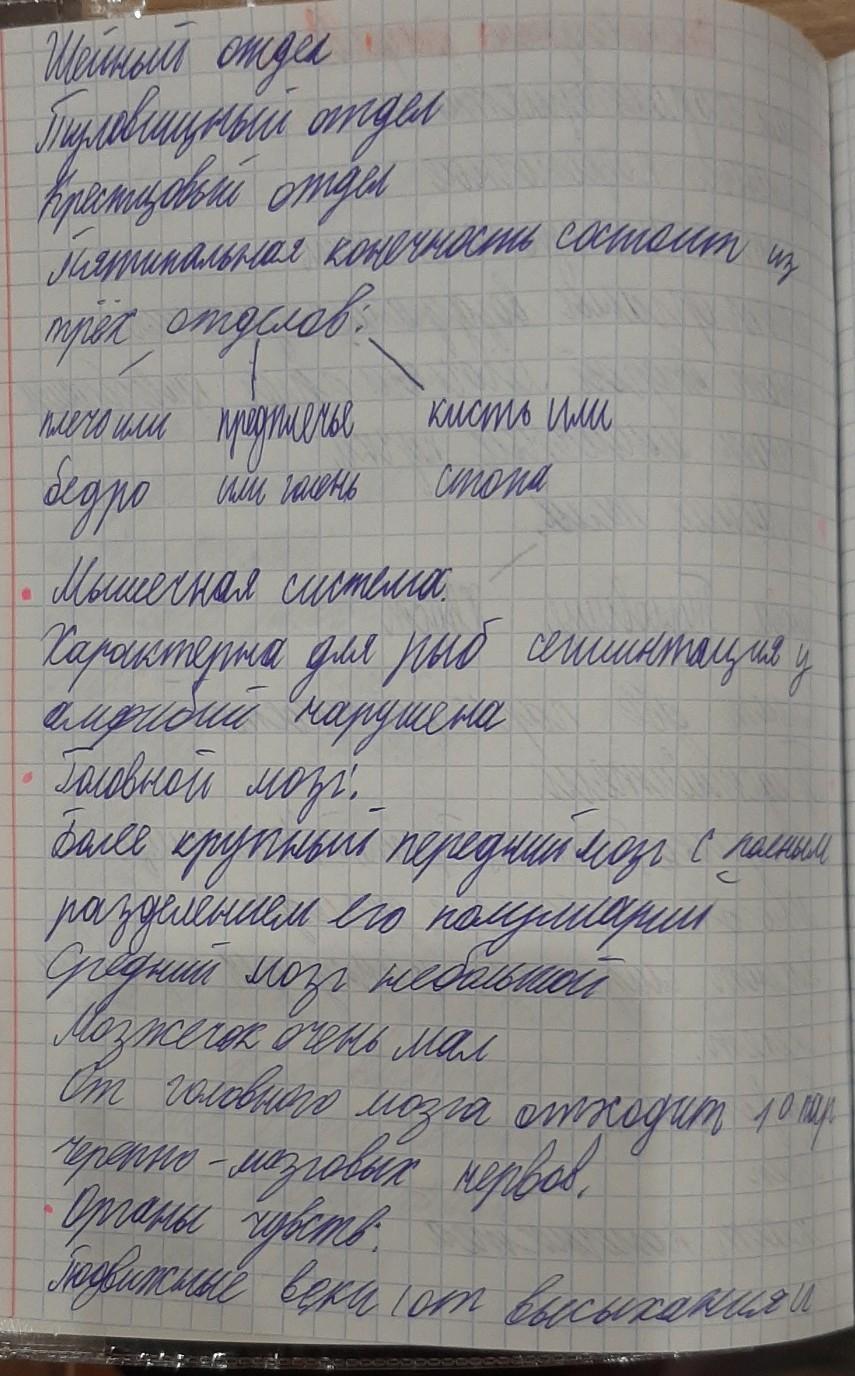 Шейный отдел
Туловищный отдел
Крестцовый отдел
Пятипальная конечность состоит из
трёх отделов:
плечо или предплечье кисть или
бедро или голень стопа
Мышечная система.
Характерна для рыб сегминтация у
амфибий нарушена
Головной мозг:
Более крупный передний мозг с полным
разделением его полушарии
Средний мозг небольшой
Мозжечок очень мал
От головного мозга отходит 10 пар
черепно-мозговых нервов.
Органы чувств:
Подвижные веки (от высыхания и